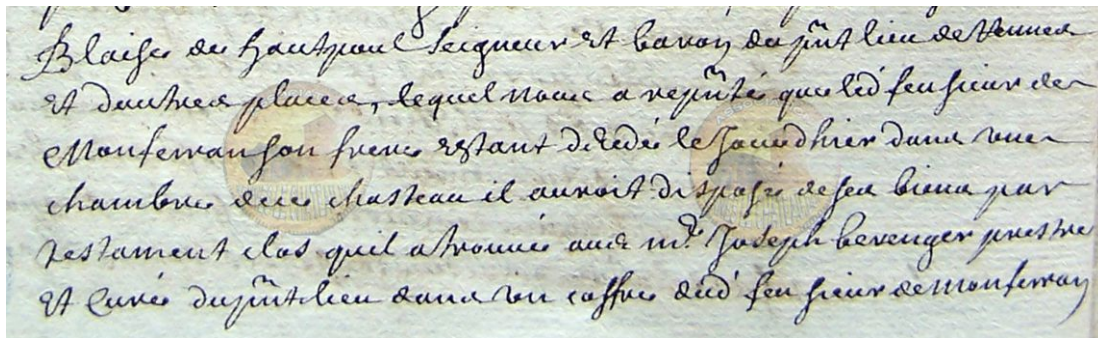 Blaise de hautpoul seigneur et baron du pñt lieu de Rennes
et dautres places, lequel nous a repñté que led feu sieur de
Monferran son frere estant décédé le jourdhier dans une
chambre de ce chasteau il auroit disposé de ses biens par
testament clos quil a trouvé avec mr Joseph berenger prestre
et curé du pñt lieu dans un coffre dud feu sieur de monferran